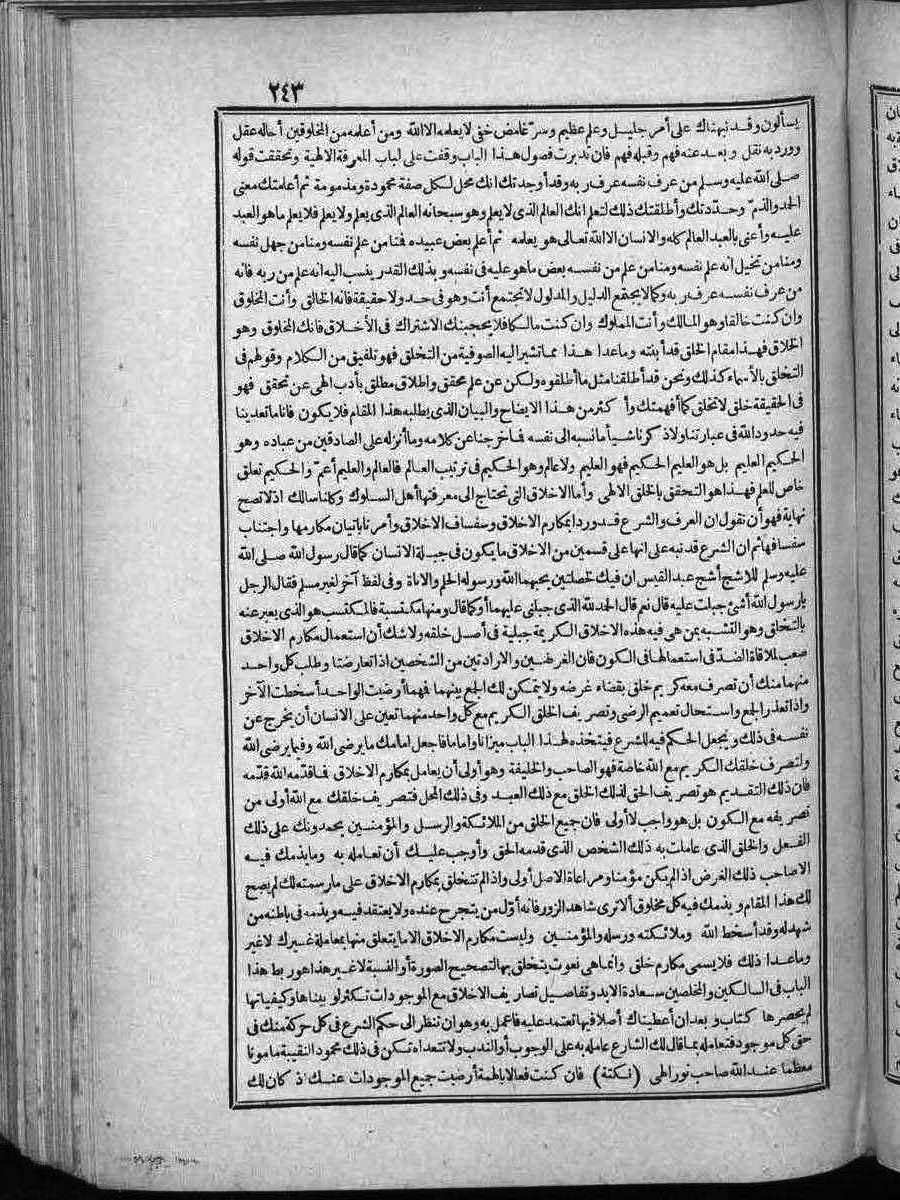 ٢٤٣
يسألون وقد نبهناك على أمر جليل وعلم عظيم وسر غامض خفى لا يعلمه الا الله ومن أعلمه من المخلوقين أحاله عقل
وورد به نقل وبعد عنه فهم وقبله فهم فان تدبرت فصول هذا الباب وقفت على لباب المعرفة الالهية وتحققت قوله
صلى الله عليه وسلم من عرف نفسه عرف ربه وقد أوجدتك انك محل لكل صفة محمودة ومذمومة ثم أعلمتك معنى
الحمد والذم وحددتك وأطلقتك ذلك لتعلم انك العالم الذى لا يعلم وهو سبحانه العالم الذى يعلم ولا يعلم فلا يعلم ما هو العبد
عليه وأعنى بالعبد العالم كله والانسان الا الله تعالى هو يعلمه ثم أعلم بعض عبيده فمنا من علم نفسه ومنا من جهل نفسه
ومنا من تخيل انه علم نفسه ومنا من علم من نفسه بعض ما هو عليه فى نفسه وبذلك القدر ينسب اليه انه علم من ربه فانه
من عرف نفسه عرف ربه وكما لا يجتمع الدليل والمدلول لا تجتمع أنت وهو فى حد ولا حقيقة فانه الخالق وأنت المخلوق
وان كنت خالقا وهو المالك وأنت المملوك وان كنت مالكا فلا يحجبنك الاشتراك فى الأخلاق فانك المخلوق وهو
الخلاق فهذا مقام الخلق قد أبنته وما عدا هذا مما تشير اليه الصوفية من التخلق فهو تلفيق من الكلام وقولهم فى
التخلق بالأسماء كذلك ونحن قد أطلقنا مثل ما أطلقوه ولكن عن علم محقق واطلاق مطلق بأدب الهى عن تحقق فهو
فى الحقيقة خلق لا تخلق كما أفهمتك وأكثر من هذا الايضاح والبيان الذى يطلبه هذا المقام فلا يكون فانا ما تعدينا
فيه حدود الله فى عبارتنا ولا ذكرنا شيأ ما نسبه الى نفسه فما خرجنا عن كلامه وما أنزله على الصادقين من عباده وهو
الحكيم العليم بل هو العليم الحكيم فهو العليم ولا عالم وهو الحكيم فى ترتيب العالم فالعالم والعليم أعم والحكيم تعلق
خاص للعلم فهذا هو التحقق بالخلق الالهى وأما الاخلاق التى تحتاج الى معرفتها أهل السلوك وكلنا سالك اذ لا تصح
نهاية فهو أن نقول ان العرف والشرع قد وردا بمكارم الاخلاق وسفساف الاخلاق وأمرنا باتيان مكارمها واجتناب
سفسافها ثم ان الشرع قد نبه على انها على قسمين من الاخلاق ما يكون فى جبلة الانسان كما قال رسول الله صلى الله
عليه وسلم للاشج أشج عبد القيس ان فيك لخصلتين يحبهما الله ورسوله الحلم والاناة وفى لفظ آخر لغير مسلم فقال الرجل
يا رسول الله أشئ جبلت عليه قال نعم قال الحمد لله الذى جبلنى عليهما أو كما قال ومنها مكتسبة فالمكتسب هو الذى يعبر عنه
بالتخلق وهو التشبه بمن هى فيه هذه الاخلاق الكريمة جبلية فى أصل خلقه ولا شك أن استعمال مكارم الاخلاق
صعب لملاقاة الضد فى استعمالها فى الكون فان الغرضين والارادتين من الشخصين اذا تعارضتا وطلب كل واحد
منهما منك أن تصرف معه كريم خلق بقضاء غرضه ولا يتمكن لك الجمع بينهما فهما أرضيت الواحد أسخطت الآخر
واذا تعذر الجمع واستحال تعميم الرضى وتصريف الخلق الكريم مع كل واحد منهما تعين على الانسان أن يخرج عن
نفسه فى ذلك ويجعل الحكم فيه للشرع فيتخذه لهذا الباب ميزانا واماما فاجعل امامك ما يرضى الله وفيما يرضى الله
ولتصرف خلقك الكريم مع الله خاصة فهو الصاحب والخليفة وهو أولى أن يعامل بمكارم الاخلاق فما قدمه الله قدمه
فان ذلك التقديم هو تصريف الحق لذلك الخلق مع ذلك العبد وفى ذلك المحل فتصريف خلقك مع الله أولى من
تصريفه مع الكون بل هو واجب لا أولى فان جميع الخلق من الملائكة والرسل والمؤمنين يحمدونك على ذلك
الفعل والخلق الذى عاملت به ذلك الشخص الذى قدمه الحق وأوجب عليك أن تعامله به وما يذمك فيه
الا صاحب ذلك الغرض اذ لم يكن مؤمنا ومراعاة الاصل أولى واذا لم تتخلق بمكارم الاخلاق على ما رسمته لك لم يصح
لك هذا المقام ويذمك فيه كل مخلوق ألا ترى شاهد الزور فانه أول من يتجرح عنده ولا يعتقد فيه ويذمه فى باطنه من
شهد له وقد أسخط الله وملائكته ورسله والمؤمنين وليست مكارم الاخلاق الا ما يتعلق منها بمعاملة غيرك لا غير
وما عدا ذلك فلا يسمى مكارم خلق وانما هى نعوت يتخلق بها لتصحيح الصورة أو النسبة لا غير هذا هو ربط هذا
الباب فى السالكين والمخلصين سعادة الابد وتفاصيل تصاريف الاخلاق مع الموجودات تكثر لو بيناها وكيفياتها
لم يحصرها كتاب وبعد ان أعطيناك أصلا فيها تعتمد عليه فاعمل به وهو ان تنظر الى حكم الشرع فى كل حركة منك فى
حق كل موجود فتعامله بما قال لك الشارع عامله به على الوجوب أو الندب ولا تتعداه تكن فى ذلك محمود النقيبة مأمونا
معظما عند الله صاحب نور الهى (نكتة) فان كنت فعالا بالهمة أرضيت جميع الموجودات عنك اذ كان لك